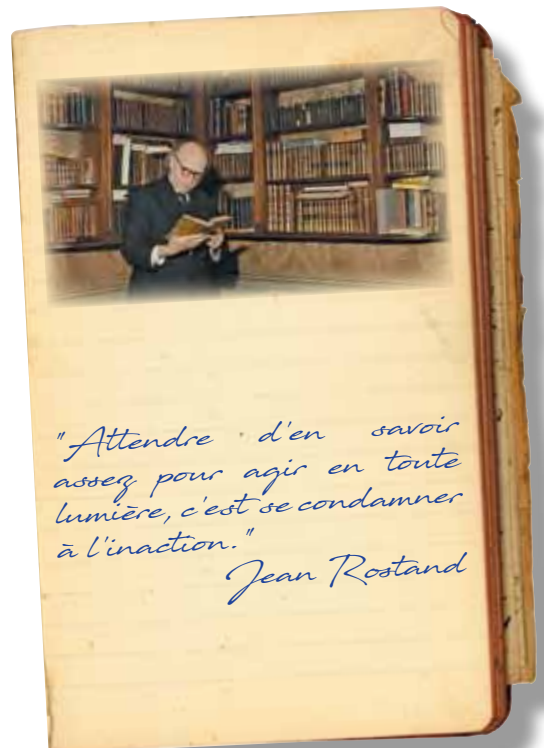 "Attendre d'en savoir
assez pour agir en toute
lumière, c'est se condamner
à l'inaction."
Jean Rostand